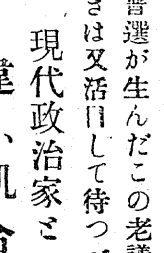 普選が生んだこの老議
さは又活目して待つ
現代政治家と